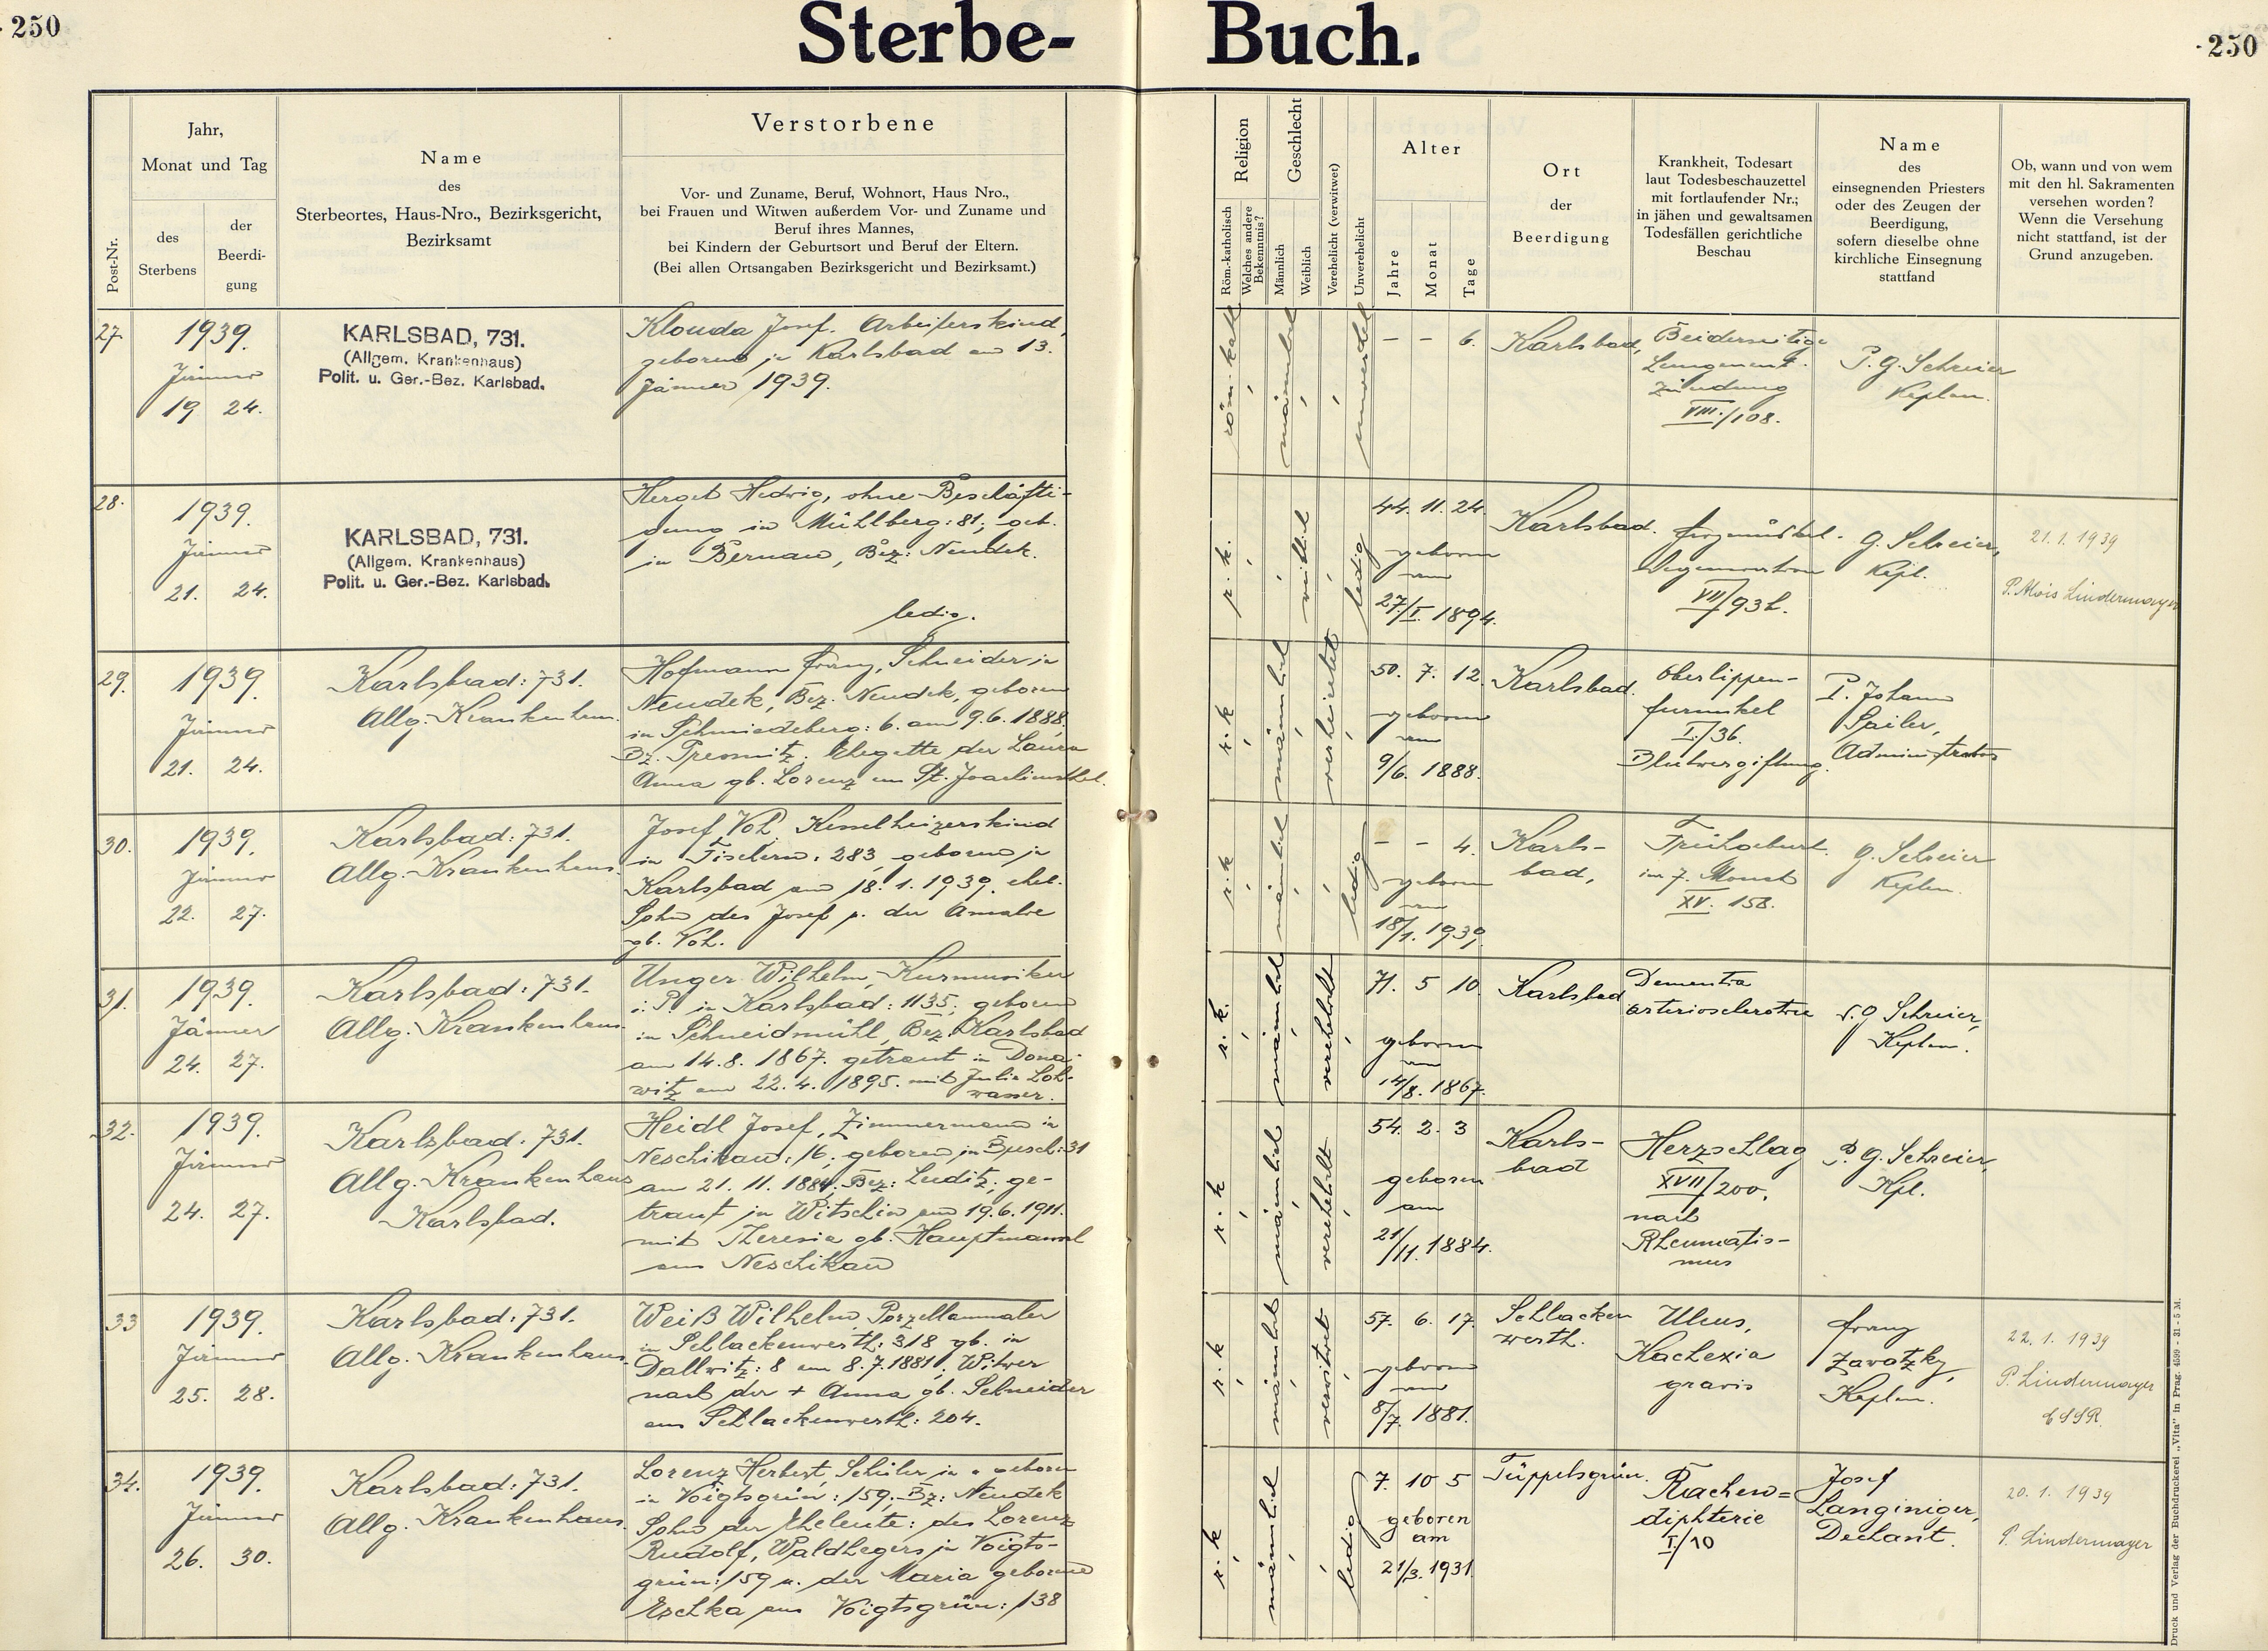 250
Sterbe-
Buch.
250
Post-Nr.
Jahr,
Monat und Tag
des
Sterbens
der
Beerdi-
gung
Name
des
Sterbeortes, Haus-Nro., Bezirksgericht,
Bezirksamt
Verstorbene
Vor- und Zuname, Beruf, Wohnort, Haus Nro.,
bei Frauen und Witwen außerdem Vor- und Zuname und
Beruf ihres Mannes,
bei Kindern der Geburtsort und Beruf der Eltern.
(Bei allen Ortsangaben Bezirksgericht und Bezirksamt.)
Religion
Röm.-katholisch
Welches andere
Bekenntnis?
Geschlecht
Männlich
Weiblich
Verehelicht (verwitwet)
Unverehelicht
Alter
Jahre
Monat
Tage
Ort
der
Beerdigung
Krankheit, Todesart
laut Todesbeschauzettel
mit fortlaufender Nr.;
in jähen und gewaltsamen
Todesfällen gerichtliche
Beschau
Name
des
einsegnenden Priesters
oder des Zeugen der
Beerdigung,
sofern dieselbe ohne
kirchliche Einsegnung
stattfand
Ob, wann und von wem
mit den hl. Sakramenten
versehen worden?
Wenn die Versehung
nicht stattfand, ist der
Grund anzugeben.
27.
1939.
Jänner
19 24.
KARLSBAD, 731.
(Allgem. Krankenhaus)
Polit. u. Ger.-Bez. Karlsbad.
Klouda Josef. Arbeiterskind,
geboren in Karlsbad am 13.
Jänner 1939.
röm. kath.
männlich
- - 6.
Karlsbad,
Beiderseitige
Lungenent-
zündung
VIII./108.
P. G. Schreier
Kaplan.
28.
1939.
Jänner
21. 24.
KARLSBAD, 731.
(Allgem. Krankenhaus)
Polit. u. Ger.-Bez. Karlsbad.
Herget Hedwig, ohne Beschäfti-
gung in Mühlberg: 81, geb.
in Bernau, Bez: Neudek.
ledig.
r. k.
weiblich
ledig
44. 11. 24.
geboren
am
27./I. 1894.
Karlsbad.
Herzmuskel-
degeneration
G. Schreier,
Kapl.
21. 1. 1939
P. Alois Lindermayer
29.
1939.
Jänner
21. 24.
Karlsbad: 731.
Allg. Krankenhaus.
Hofmann Franz, Schneider in
Neudek, Bez. Neudek, geboren
in Schmiedeberg: 6. am 9.6.1888.
Bz. Pressnitz. Ehegatte der Laura
Anna gb. Lorenz aus St. Joachimsthal.
r. k
männlich
verheiratet
50. 7. 12.
geboren
am
9/6. 1888.
Karlsbad.
Oberlippen-
furunkel
I./36.
Blutvergiftung.
P. Johann
Sailer,
Administrator
30.
1939.
Jänner
22. 27.
Karlsbad: 731.
Allg. Krankenhaus.
Josef Vol. Kesselheizerskind
in Fischern: 283, geboren in
Karlsbad am 18. 1. 1939. ehel.
Sohn des Josef u. der Amalie
gb. Vol.
r. k
männlich
ledig
- - 4.
geboren
am
18/1. 1939,
Karls-
bad,
Frühgeburt.
im 7. Monat
XV. 158.
G. Schreier
Kaplan.
31.
1939.
Jänner
24. 27.
Karlsbad: 731.
Allg. Krankenhaus.
Unger Wilhelm, Kurmusiker
i. P. in Karlsbad: 1135, geboren
in Schneidmühl, Bez. Karlsbad
am 14. 8. 1867. getraut in Dona-
witz am 22. 4. 1895. mit Julie Loh-
wasser.
r. k.
männlich
verehelicht
71. 5 10.
geboren
am
14/8. 1867.
Karlsbad
Dementia
arteriosclerotica
G Schreier,
Kaplan.
32.
1939.
Jänner
24. 27.
Karlsbad: 731.
Allg. Krankenhaus
Karlsbad.
Heidl Josef, Zimmermann in
Neschikau: 16, geboren in Busch: 31
am 21. 11. 1884. Bez: Luditz, ge-
traut in Witschin am 19. 6. 1911.
mit Theresia gb. Hauptmannl
aus Neschikau
r. k
männlich
verehelicht
54. 2. 3
geboren
am
21/11. 1884.
Karls-
bad
Herzschlag
XVII/200,
nach
Rheumatis-
mus
P. G. Schreier,
Kpl.
33
1939.
Jänner
25. 28.
Karlsbad: 731.
Allg. Krankenhaus.
Weiß Wilhelm, Porzellanmaler
in Schlackenwerth: 318 gb. in
Dallwitz: 8 am 8. 7. 1881, Witwer
nach der + Anna gb. Schneider
aus Schlackenwerth: 204.
r. k
männlich
verwitwet
57. 6. 17.
geboren
am
8/7. 1881.
Schlacken
werth.
Ulcus,
Kachexia
gravis
Franz
Zavotzky,
Kaplan.
22. 1. 1939
P. Lindermayer
CSSR.
34.
1939.
Jänner
26. 30.
Karlsbad: 731.
Allg. Krankenhaus.
Lorenz Herbert, Schüler in " geboren
in Voigtsgrün: 159, Bz: Neudek
Sohn der Eheleute: des Lorenz
Rudolf, Waldhegers in Voigts-
grün: 159 u. der Maria geborene
Eschka aus Voigtsgrün: 138
r. k
männlich
ledig
7. 10 5
geboren
am
21/3. 1931.
Tüppelsgrün.
Rachen=
diphterie
I./10
Josef
Langiniger,
Dechant.
20. 1. 1939
P. Lindermayer
Druck und Verlag der Buchdruckerei „Vita" in Prag. - 4599 - 31 - 5 M.